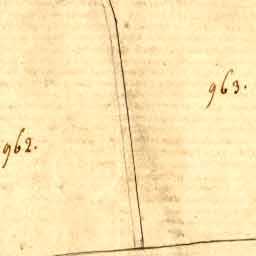 963.
962.